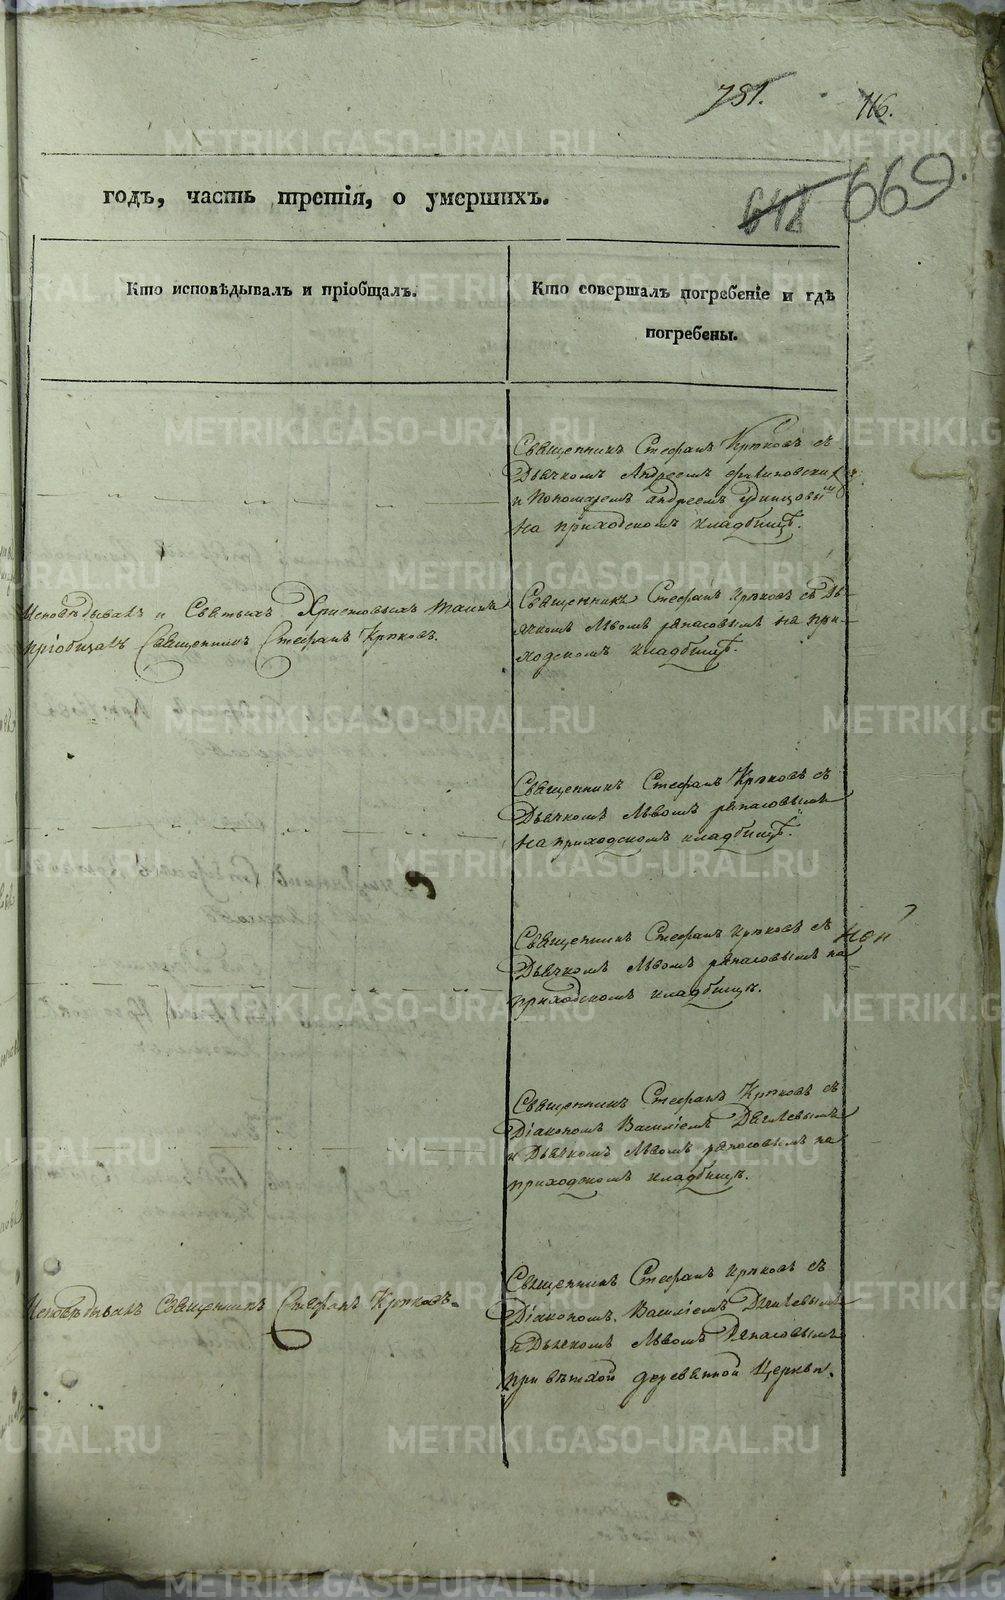 781.
116.
669.
618
годъ, часть третія, о умершихъ.
Кто исповѣдывалъ и пріобщалъ.
Кто совершалъ погребеніе и гдѣ
погребены.
Священникъ Стефанъ Крюковъ съ
Дьячкомъ Андреемъ
и Пономаремъ Андреемъ Удинцовы
на приходскомъ кладбищѣ.
Исповѣдывалъ и Святыхъ Христовыхъ таинъ
пріобщалъ Священникъ Стефанъ Крюковъ.
Священникъ Стефанъ Крюковъ съ Дь-
ячкомъ Львомъ Рѣпасовымъ на при-
ходскомъ кладбищѣ.
Священникъ Стефанъ Крюковъ съ
Дьячкомъ Львомъ Рѣпасовымъ
на приходскомъ кладбищѣ.
Священникъ Стефанъ Крюковъ съ
Дьячкомъ Львомъ Рѣпасовымъ на
приходскомъ кладбищѣ.
Священникъ Стефанъ Крюковъ съ
Діакономъ Василіемъ Дягилевымъ
и Дьячкомъ Львомъ Рѣпасовымъ на
приходскомъ кладбищѣ.
Исповѣдывалъ Священникъ Стефанъ Крюковъ.
Священникъ Стефанъ Крюковъ съ
Діакономъ Василіемъ Дягилевымъ
и Дьячкомъ Львомъ Рѣпасовымъ
при ветхой деревянной Церкви.
METRIKI.GASO-URAL.RU